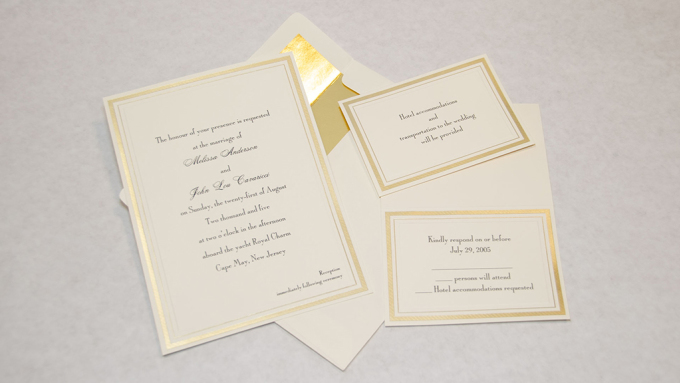 The honour of your presence is requested
at the marriage of
Melissa Anderson
and
John Leo Caravase
on Sunday, the twenty-first of August
Two thousand and five
at two o'clock in the afternoon
aboard the yacht Royal Charm
Cape May, New Jersey
Reception
immediately following ceremony
Hotel accommodations
and
transportation to the wedding
will be provided
Kindly respond on or before
July 29, 2005
persons will attend
Hotel accommodations requested